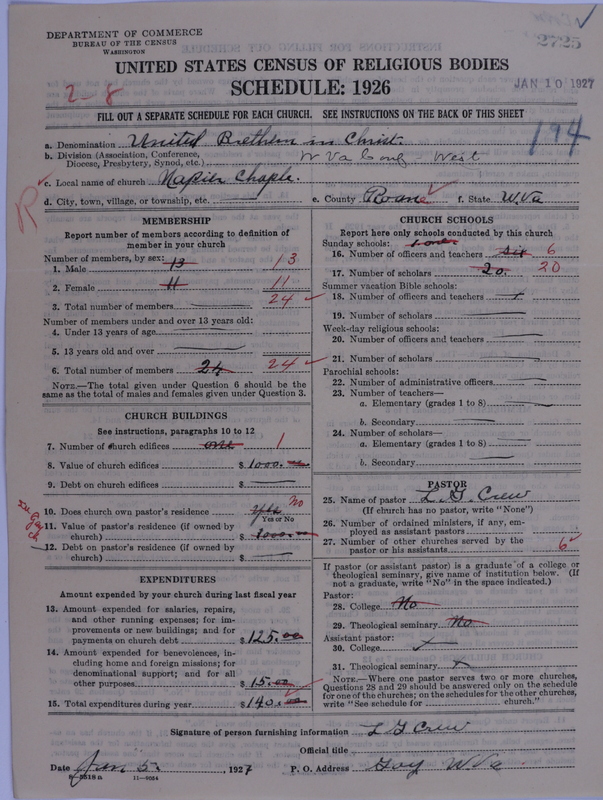 DEPARTMENT OF COMMERCE
BUREAU OF THE CENSUS
WASHINGTON
2725
UNITED STATES CENSUS OF RELIGIOUS BODIES
SCHEDULE: 1926
JAN 10 1927
2-8
FILL OUT A SEPARATE SCHEDULE FOR EACH CHURCH. SEE INSTRUCTIONS ON THE BACK OF THIS SHEET
194
a. Denomination United Brethern in Christ.
b. Division (Association, Conference, Diocese, Presbytery, Synod, etc.) W Va Cong - West
c. Local name of church Napier Chaple.
d. City, town, village, or township, etc. e. County Roane f. State W.Va
R
MEMBERSHIP
Report number of members according to definition of member in your church
Number of members, by sex:
1. Male 13 13
2. Female 11 11
3. Total number of members 24
Number of members under and over 13 years old:
4. Under 13 years of age
5. 13 years old and over
6. Total number of members 24 24
NOTE.—The total given under Question 6 should be the same as the total of males and females given under Question 3.
CHURCH BUILDINGS
See instructions, paragraphs 10 to 12
7. Number of church edifices one 1
8. Value of church edifices $ 1000.00
9. Debt on church edifices $
10. Does church own pastor's residence yes No
Yes or No
11. Value of pastor's residence (if owned by church) $ 1000.00
12. Debt on pastor's residence (if owned by church) $
EXPENDITURES
Amount expended by your church during last fiscal year
13. Amount expended for salaries, repairs, and other running expenses; for improvements or new buildings; and for payments on church debt $ 125.00
14. Amount expended for benevolences, including home and foreign missions; for denominational support; and for all other purposes $ 15.00
15. Total expenditures during year $ 140.00
CHURCH SCHOOLS
Report here only schools conducted by this church
Sunday schools: 1 one
16. Number of officers and teachers six 6
17. Number of scholars 20 20
Summer vacation Bible schools:
18. Number of officers and teachers
19. Number of scholars
Week-day religious schools:
20. Number of officers and teachers
21. Number of scholars
Parochial schools:
22. Number of administrative officers
23. Number of teachers—
a. Elementary (grades 1 to 8)
b. Secondary
24. Number of scholars—
a. Elementary (grades 1 to 8)
b. Secondary
PASTOR
25. Name of pastor L. G. Crew
(If church has no pastor, write "None")
26. Number of ordained ministers, if any, employed as assistant pastors
27. Number of other churches served by the pastor or his assistants 6
If pastor (or assistant pastor) is a graduate of a college or theological seminary, give name of institution below. (If not a graduate, write "No" in the space indicated.)
Pastor:
28. College No
29. Theological seminary No
Assistant pastor:
30. College
31. Theological seminary
NOTE.—Where one pastor serves two or more churches, Questions 28 and 29 should be answered only on the schedule for one of the churches; on the schedules for the other churches, write "See schedule for church."
Signature of person furnishing information L G Crew
Official title
Date Jan 5. , 1927 P. O. Address Gay W Va
8-5818 a 11-9024